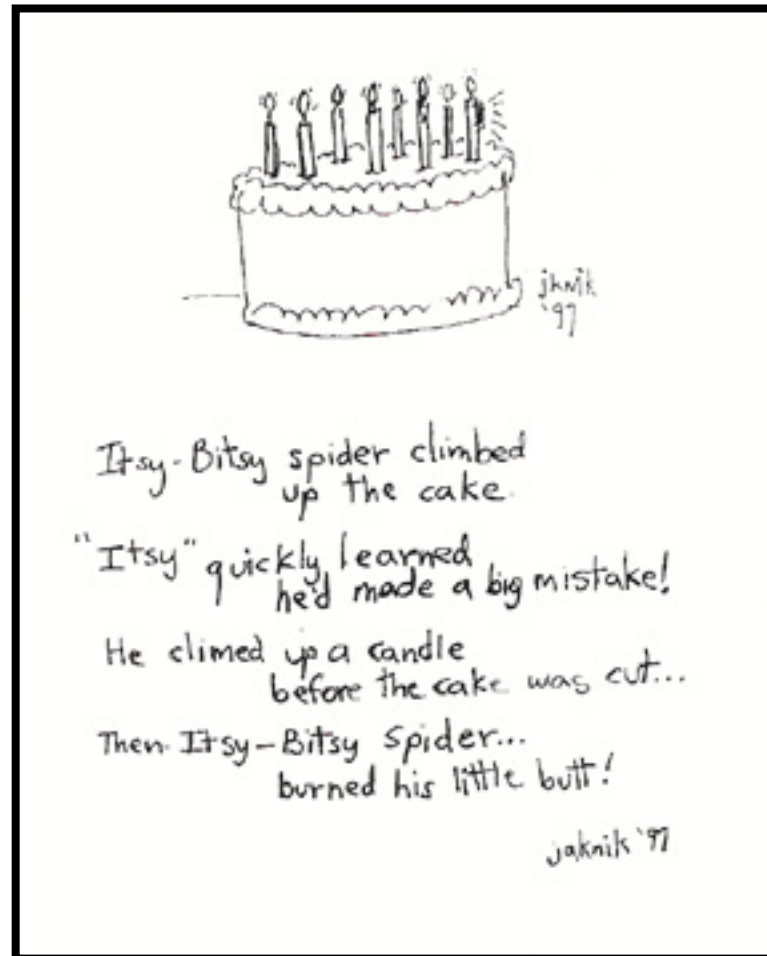 jknik
'97
Itsy-Bitsy spider climbed
up the cake.
"Itsy" quickly learned
he'd made a big mistake!
He climed up a candle
before the cake was cut...
Then Itsy-Bitsy spider...
burned his little butt!
jaknik '97